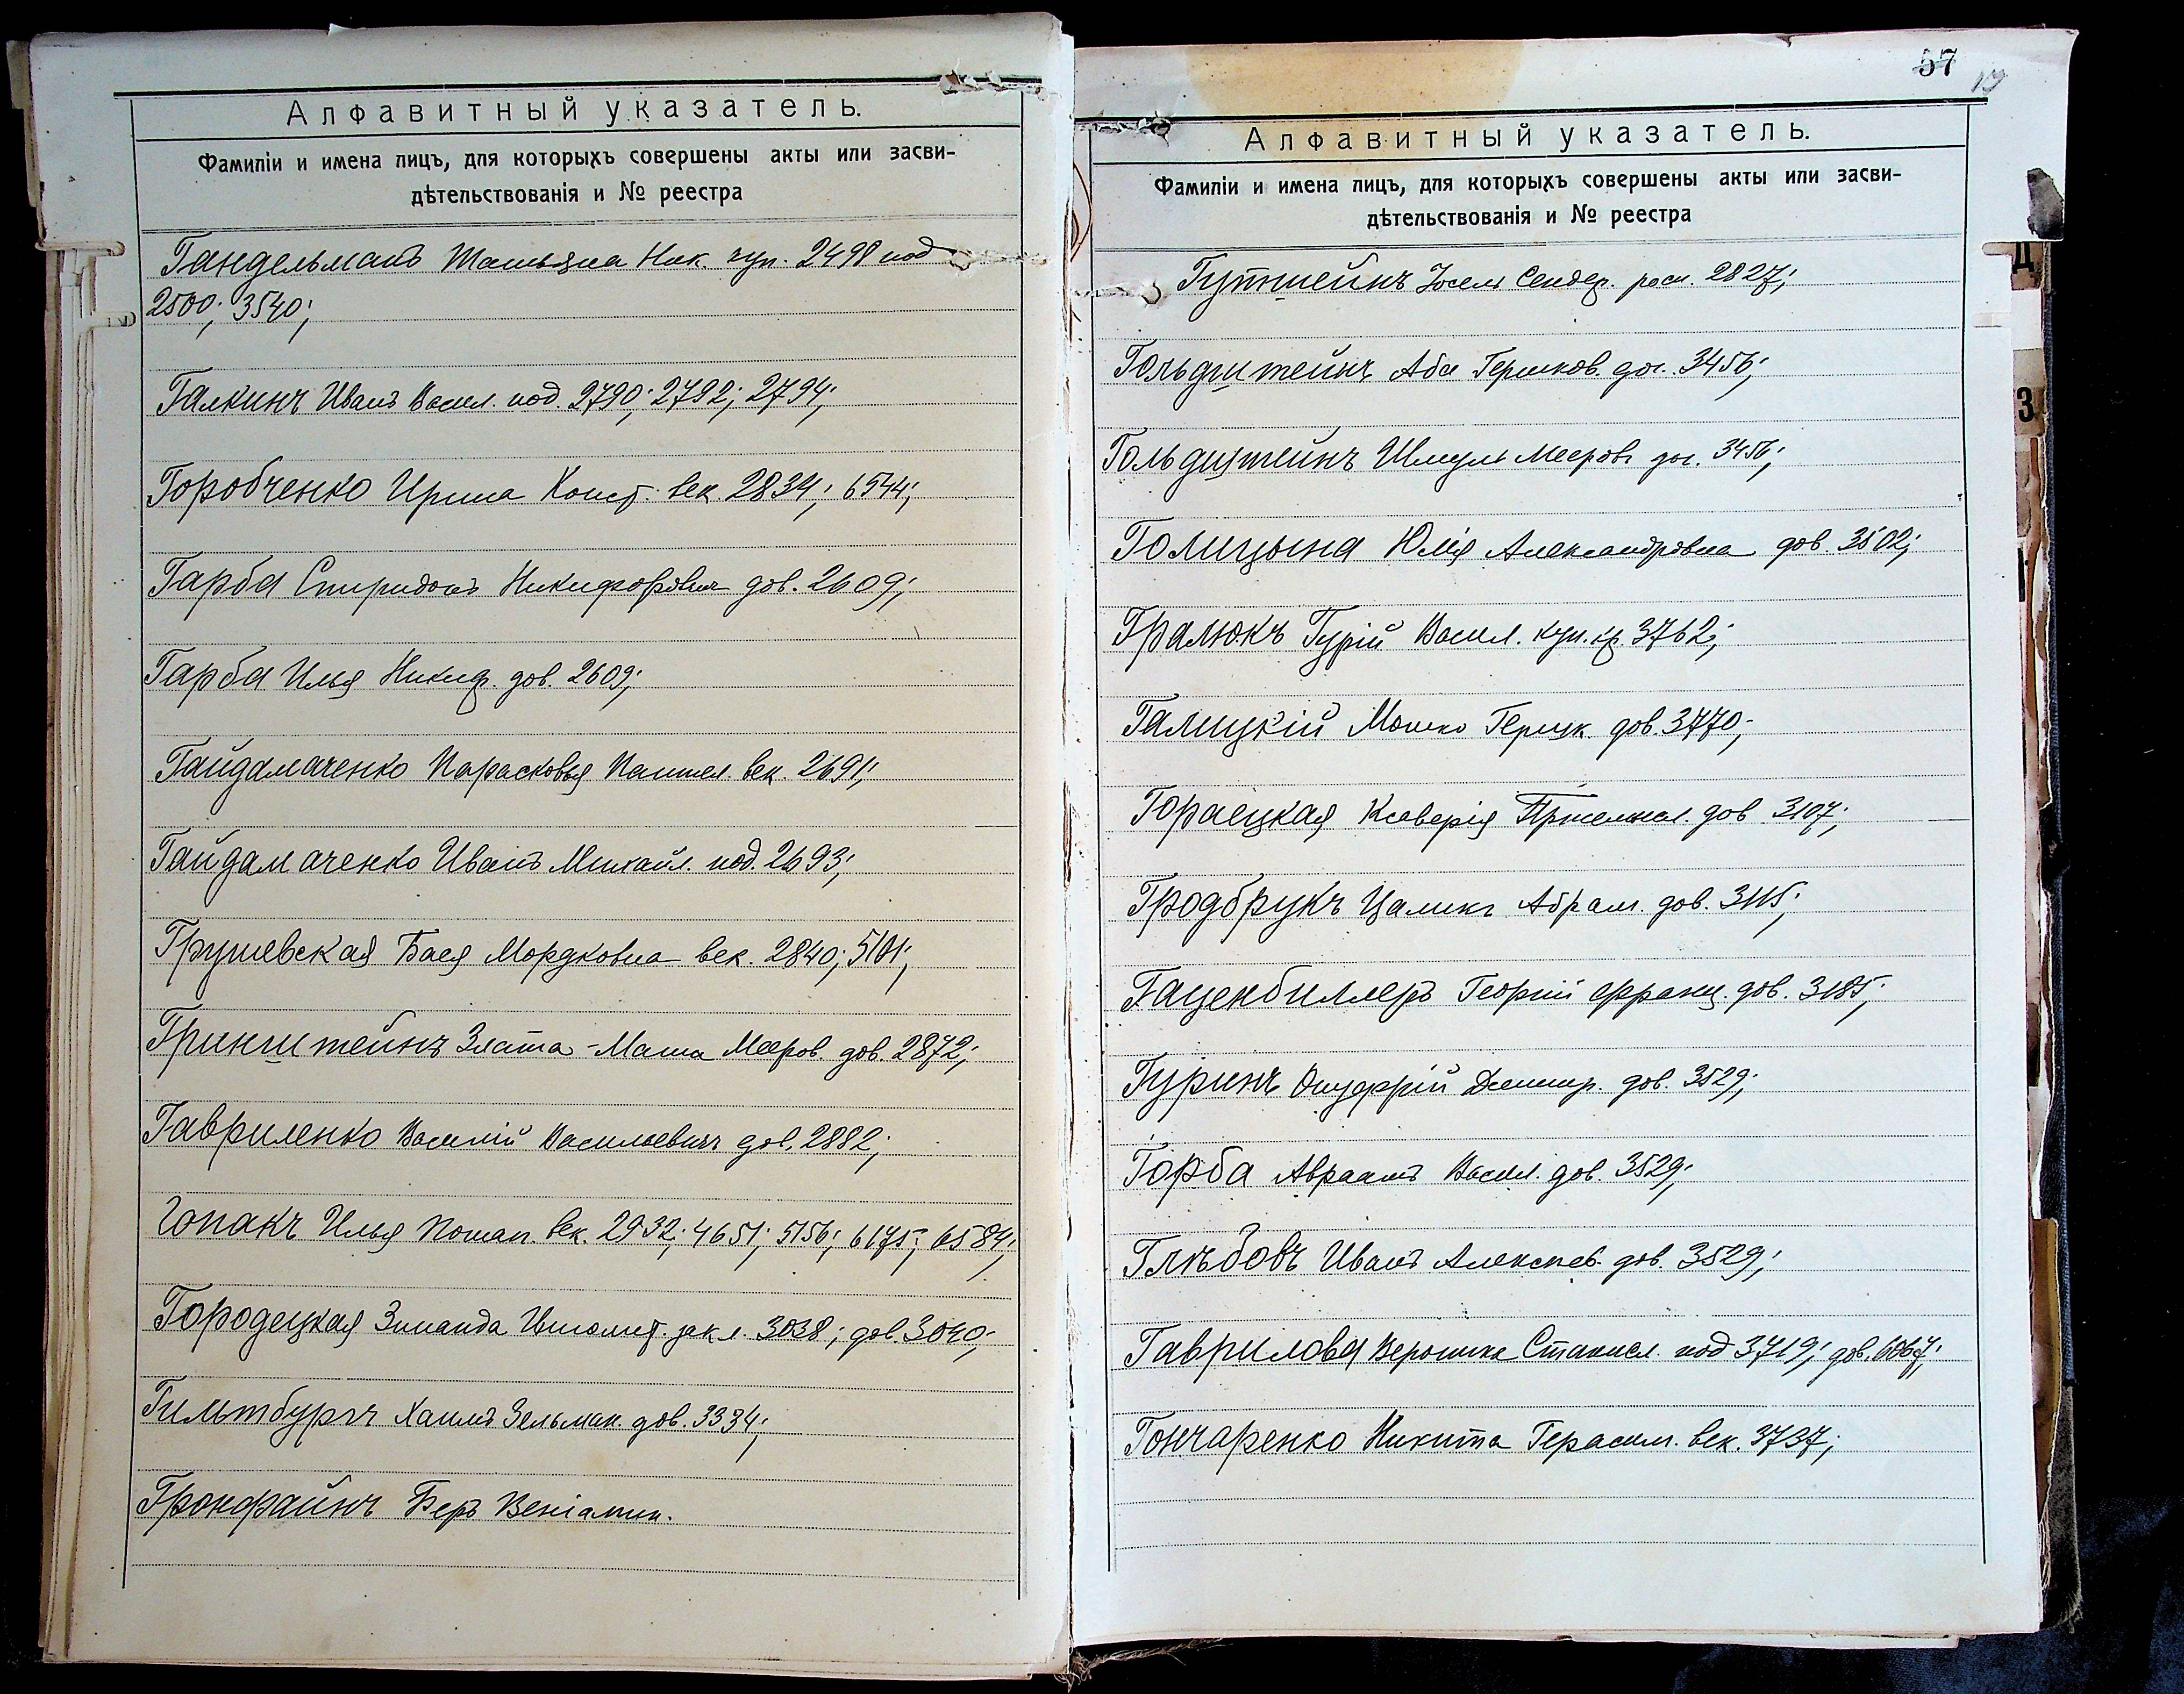 Алфавитный указатель.
Фамиліи и имена лицъ, для которыхъ совершены акты или засви-
дѣтельствованія и № реестра
Гандельманъ Татьяна Ник. куп. 2498 под
2500; 3540;
Галкинъ Иванъ Васил. под. 2790; 2792; 2794;
Горобченко Ирина Конст. век. 2834; 6544;
Гарба Спиридонъ Никифорович дов. 2609;
Гарба Илья Никиф. дов. 2609;
Гайдамаченко Парасковья Пантел. век. 2691;
Гайдамаченко Иванъ Михайл. под. 2693;
Грушевская Бася Мордковна век. 2840; 5101;
Гринштейнъ Злата-Маша Мееров. дов. 2872;
Гавриленко Василій Васильевичъ дов. 2882;
Гопакъ Илья Потап. век. 2932; 4651; 5156; 6175; 6584;
Городецкая Зинаида Ипполит. закл. 3038; дов. 3040;
Гильтбургъ Хаимъ Зельман. дов. 3334;
Гронфайнъ Беръ Веніамин.
57
19
Алфавитный указатель.
Фамиліи и имена лицъ, для которыхъ совершены акты или засви-
дѣтельствованія и № реестра
Гутштейнъ Іосель Сендер. 2827;
Гольдштейнъ Аба Гершков. дог. 3456;
Гольдштейнъ Шмуль Мееров. дог. 3456;
Голицына Юлія Александровна дов. 3502;
Гралюкъ Гурій Васил. куп. кр. 3762;
Галицкій Мошко Герцк. дов. 3770;
Гораецкая Ксаверія дов 3107;
Гродбрукъ Цаликъ Абрам. дов. 3115;
Гаценбиллеръ Георгій Франц. дов. 3185;
Гуринъ Онуфрій Дмитр. дов. 3529;
Горба Авраамъ Васил. дов. 3529;
Глѣбовъ Иванъ Алексѣев. дов. 3529;
Гаврилова Вероника Станисл. под 3719; дов. 6067;
Гончаренко Никита Герасим. век. 3737;
Д
З